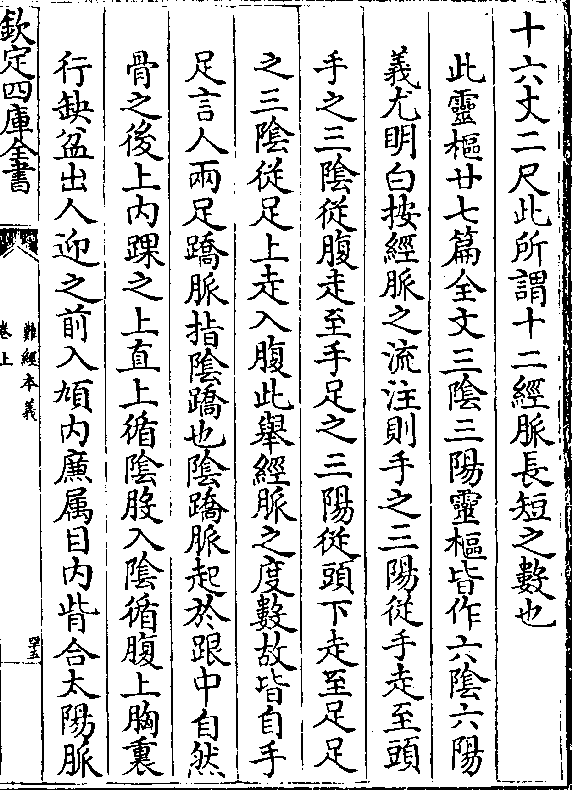 十六丈二尺此所謂十二經脈長短之數也
此靈樞廿七篇全文三陰三陽靈樞皆作六陰六陽
義尤明白按經脈之流注則手之三陽從手走至頭
手之三陰從腹走至手足之三陽從頭下走至足足
之三陰從足上走入腹此舉經脈之度數故皆自手
足言人兩足蹻脈指陰蹻也陰蹻脈起於跟中自然
骨之後上內踝之上直上循陰股入陰循腹上胸裏
行缺盆出人迎之前入頄內廉属目內眥合太陽脈
欽定四庫全書
難經本義
卷上
四十五